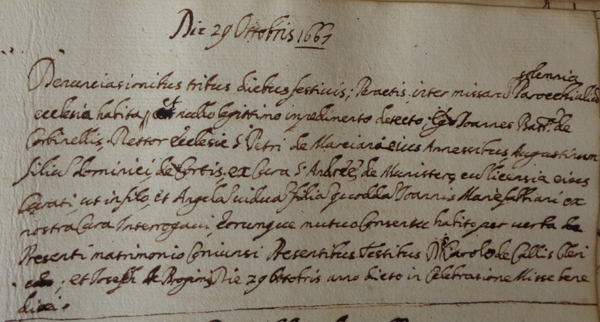 Die 29 Ottobris 1667
Denunciasionibus tribus diebus festivis, Peractis, inter missarum solemnia Parocchialis
ecclesia habita, et nullo legittimo inpedimento detecto; Ego Joannes Batt. de
Corbinellis Rettor Ecclesie S. Petri de Marciano eius Annessibus Augustinum
filiu dominici de Cortis, ex Cura S. Andree de Munistero, cu licensia eius
Curati, ut in filo, et Angela vidua filia quodda Joannis Marie fabbiani ex
nostra Cura Interrogavi, eorumque mutuo Consensu habito per verba de
Presenti matrimonio Coniunsi Presentibus Testibus Carolo de Callis Cleri
co, et Joseph de Die 29 Ottobris anno dicto in Celebrasione Misse bene
dixi.